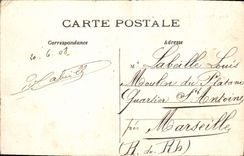 CARTE POSTALE
Correspondance
Adresse
20.6.08
à Labeille Louis
Moulin du Platane
Quartier St Antoine
près Marseille
(B. du Rh)